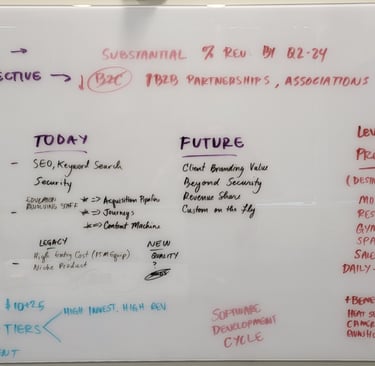 → SUBSTANTIAL % REV BY Q2-24
ECTIVE → ↓ B2C ↑ B2B PARTNERSHIPS, ASSOCIATIONS
TODAY
- SEO, Keyword Search
Security
EDUCATION
BUILDING STAFF
* => Acquisition Pipeline
* => Journeys
* => Content Machine
LEGACY
High Entry Cost
- Niche Product
NEW
QUALITY
?
FUTURE
Client Branding Value
Beyond Security
Revenue Share
Custom on the fly
Leve
PRO
MO
RES
GYM
SPA
SALE
DAILY-
+BENE
HEAT S
CAMER
$10+25
TIERS
HIGH INVEST, HIGH REV
ENT
SOFTWARE
DEVELOPMENT
CYCLE